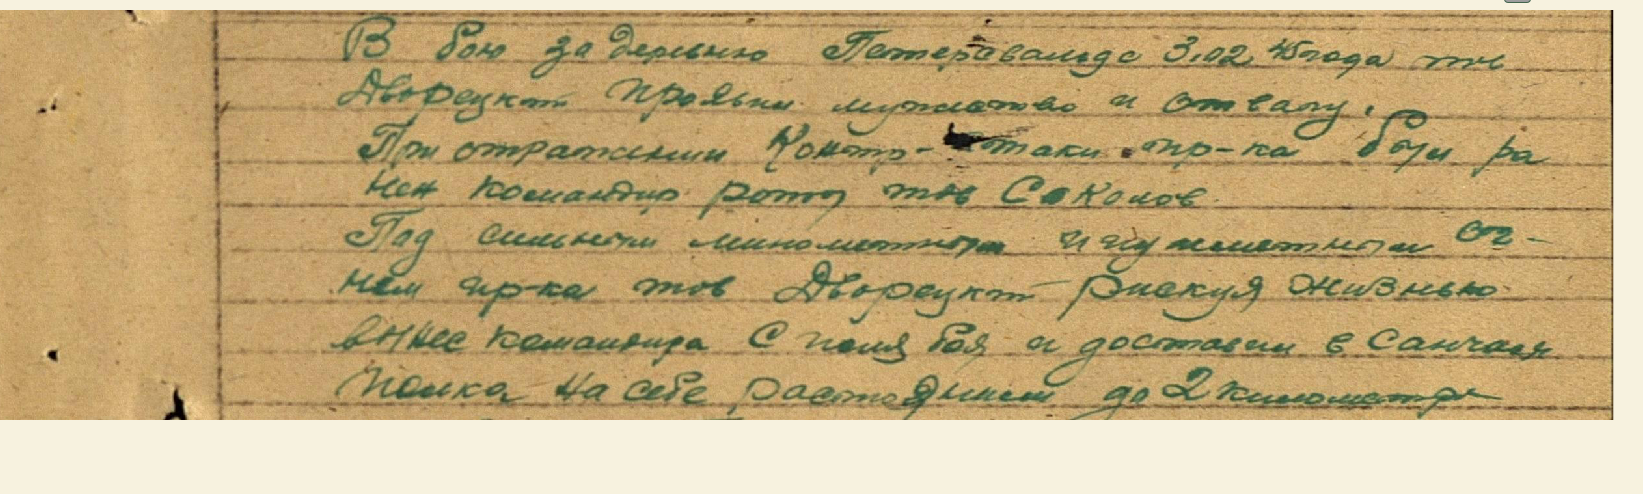 В бою за деревню Петерсвальде 3.02.45 года тов
Дворецкий проявил мужество и отвагу.
При отражении контр-атаки пр-ка был ра
нен командир роты тов Соколов
Под сильным минометным и пулеметным ог-
нем пр-ка тов Дворецкий рискуя жизнью
вынес командира с поля боя и доставил в санчасть
полка на себе расстоянием до 2 километр